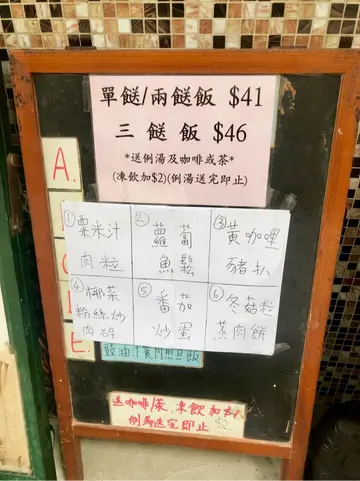 單餸/兩餸飯 $41
三餸飯 $46
*送例湯及咖啡或茶*
(凍飲加$2)(例湯送完即止)
A.
①粟米汁
肉粒
②蘿蔔
魚鬆
③黃咖哩
豬扒
④椰菜
粉絲炒
肉碎
⑤番茄
炒蛋
⑥冬菇粒
蒸肉餅
E
豉油
煎旦飯
送咖啡/茶, 凍飲加
例湯送完即止